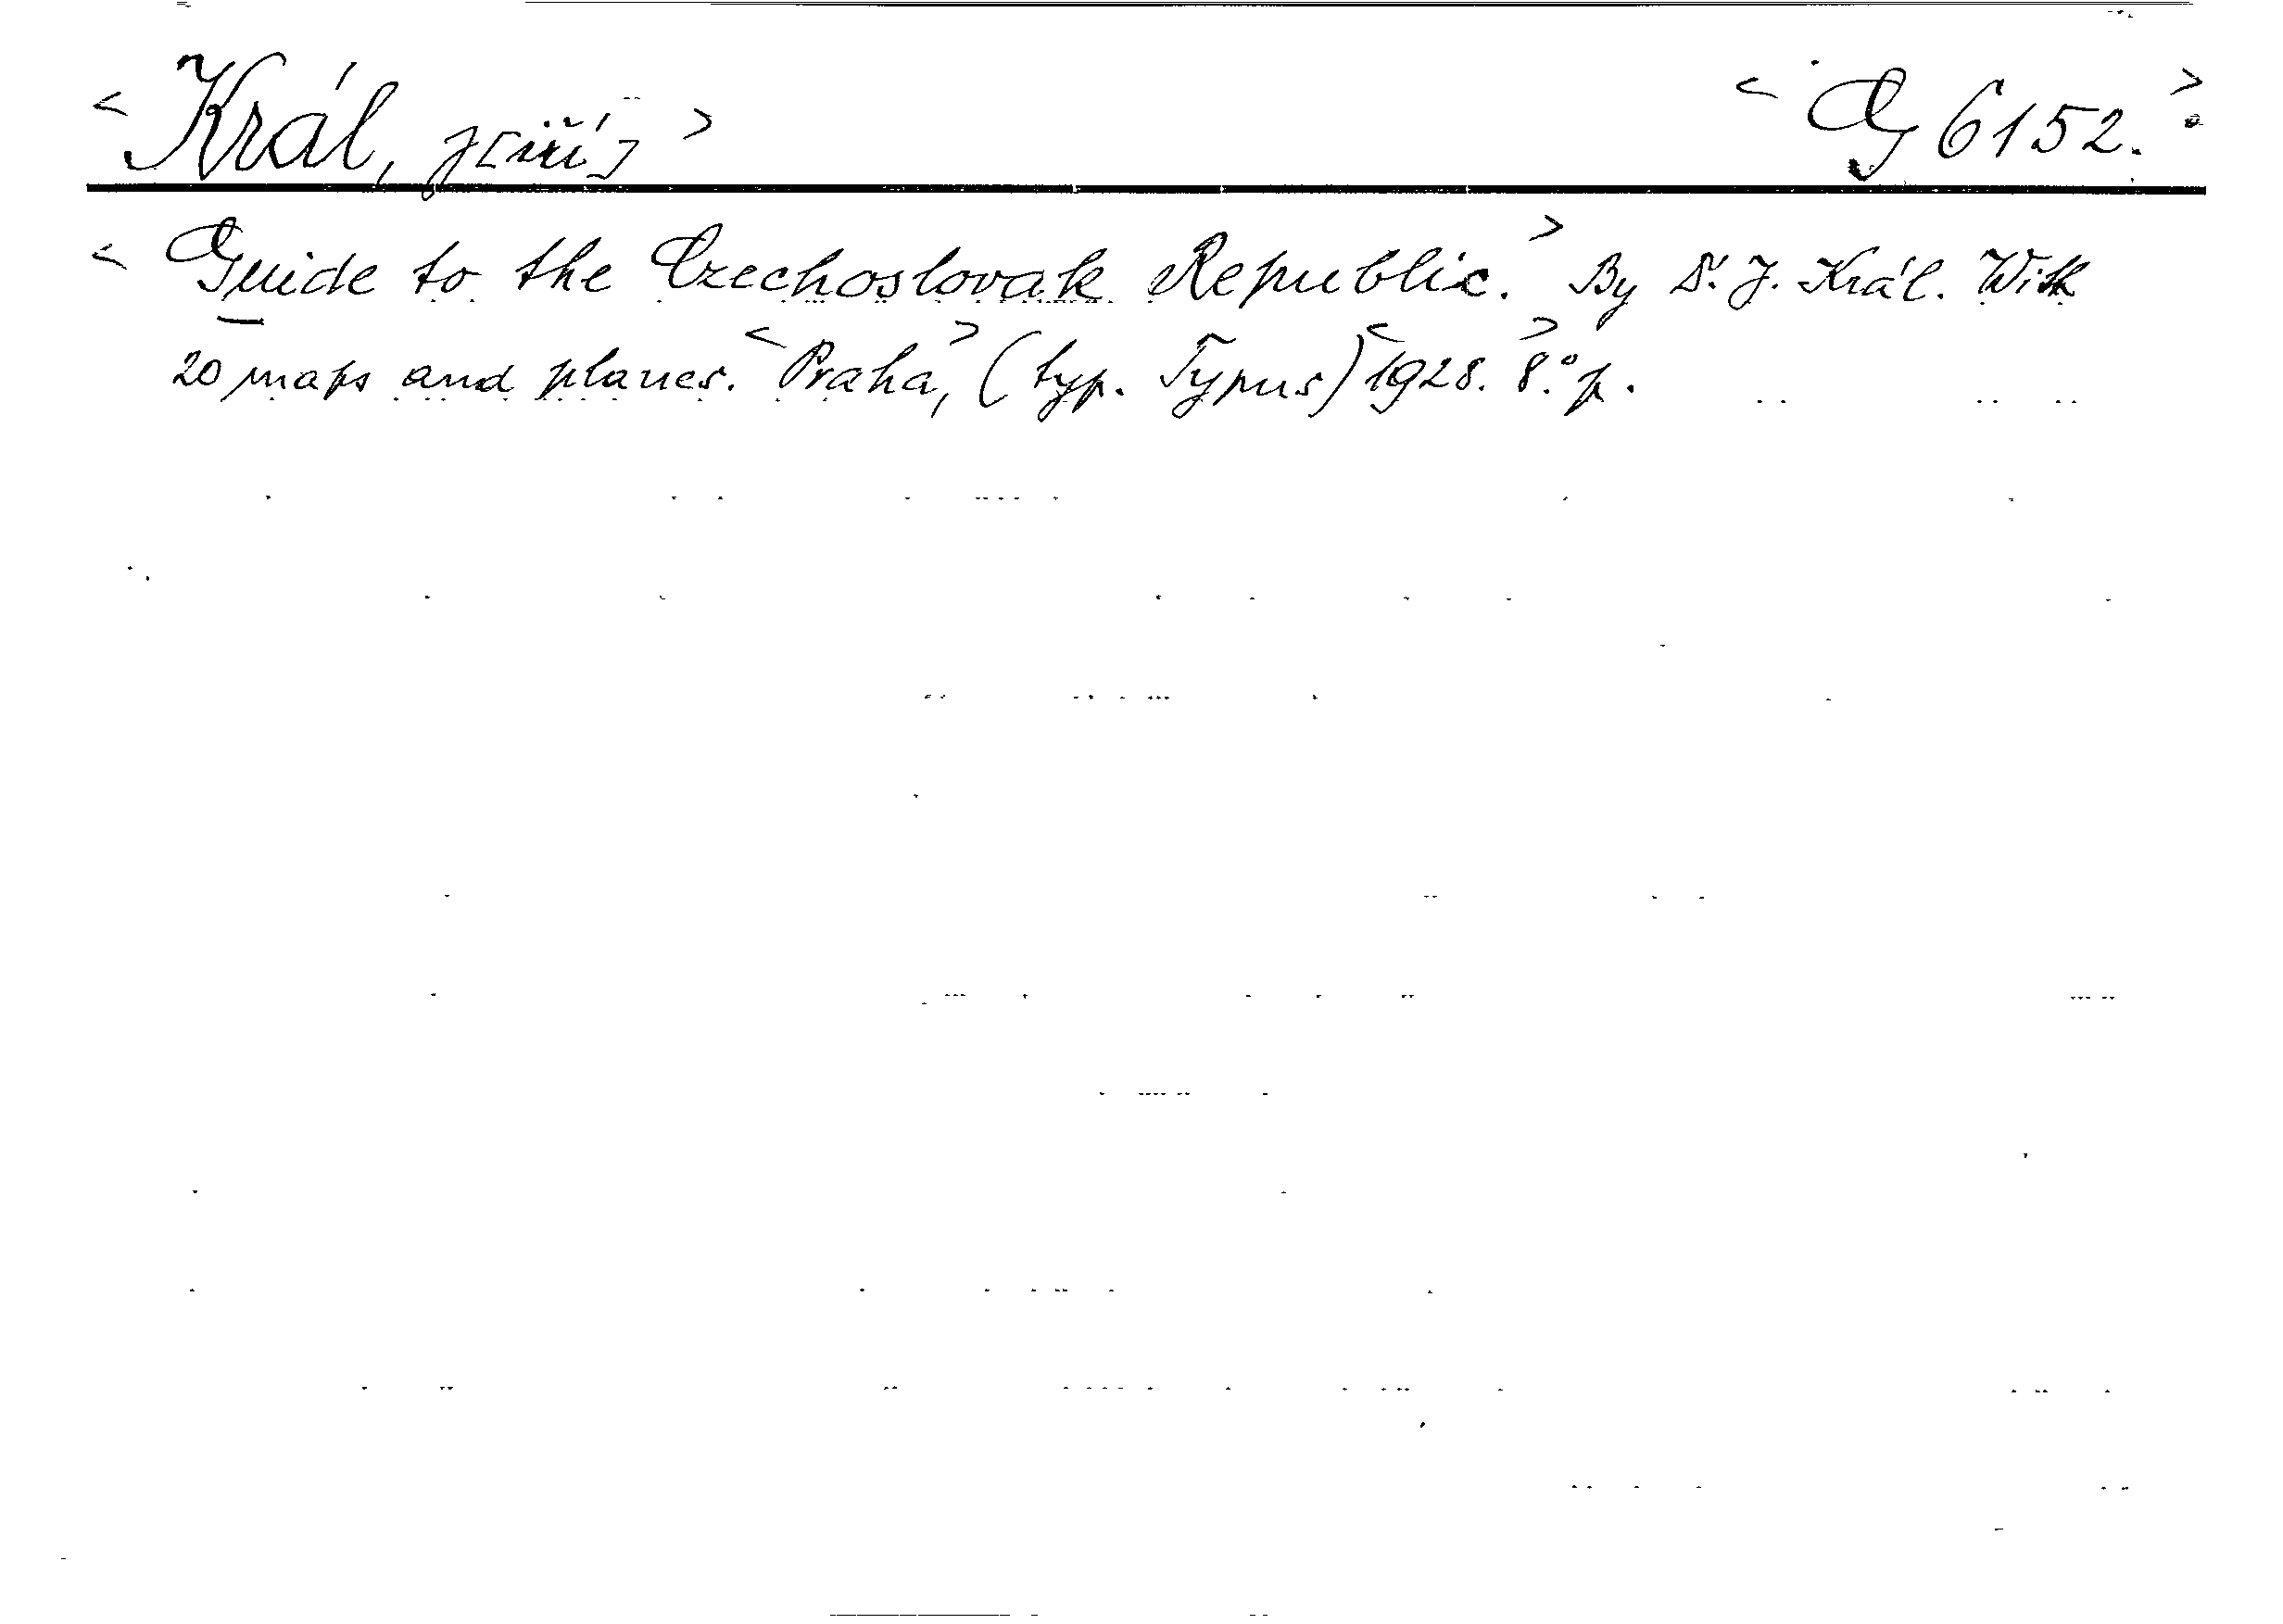 < Král, J[iří] > < G 6152. >
< Guide to the Czechoslovak Republic. > By Dr. J. Král. With
20 maps and planes. < Praha, > (typ. Typus) < 1928. > 8.° p.